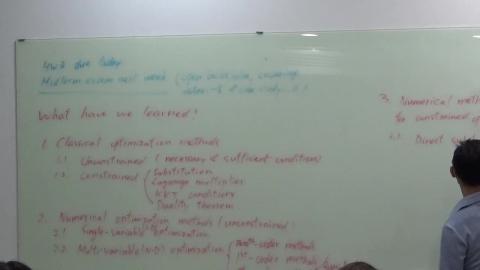 HW3 due today
Midterm exam next week (open
What have we learned?
1. Classical optimization methods
1.1 Unconstrained (necessary & sufficient conditions)
1.2. constrained
Substitution
Lagrange multiplier
KKT conditions
Duality theorem
2. Numerical optimization methods (unconstrained)
2.1 Single-variable optimization
2.2. Multi-variable (N-D) optimization
Zeroth-order methods
1st-order methods
3. Numerical
for constrained
Direct